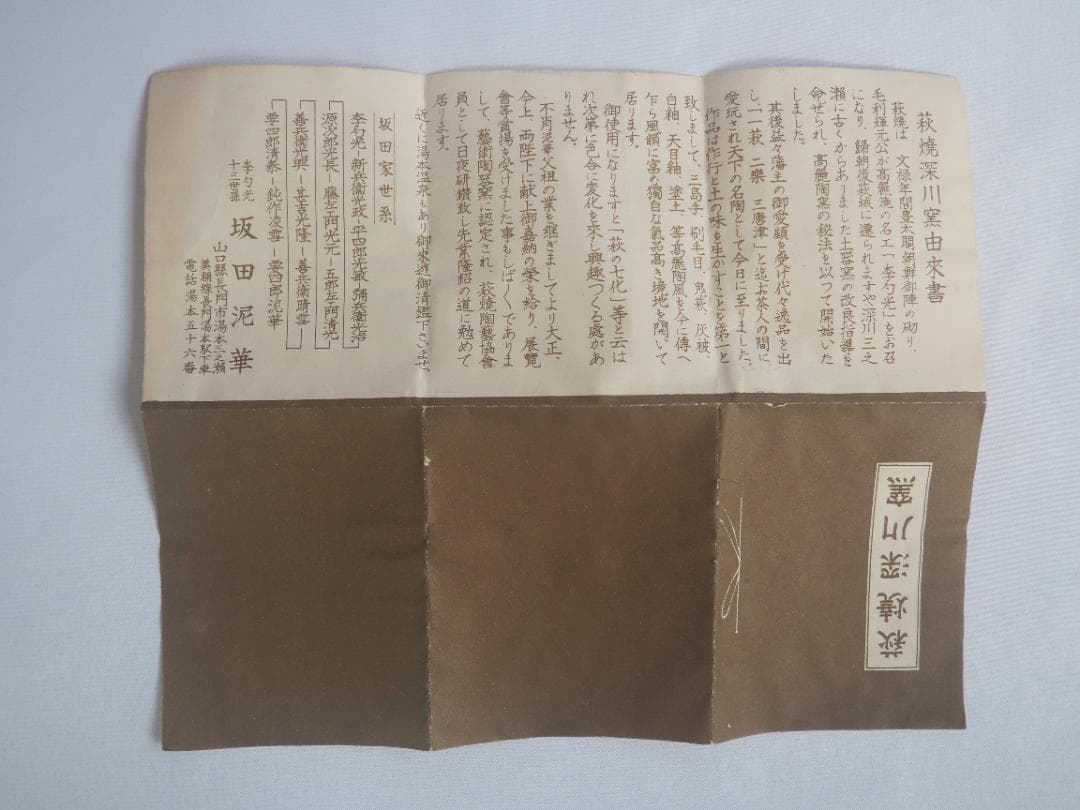 萩燒深川窯由來書
萩焼は 文禄年間豊太閤朝鮮御陣の砌り、
毛利輝元公が高麗渡の名工「李勺光」をお召
になり、歸朝後萩城に還られますや深川三之
瀬に古くからありました土器窯の改良指導を
命ぜられ、高麗陶窯の秘法を以つて開始いた
しました。
其後益々藩主の御愛顧を受け代々逸品を出
し、「一萩 二樂 三唐津」と迄お茶人の間に
愛玩され天下の名陶として今日に至りました。
作品は作行と土の味を生かすことを第一と
致しまして、三島手、刷毛目、鬼萩、灰被、
白釉、天目釉、塗土、等高麗陶風を今に傳へ
乍ら風韻に富み獨自な氣品高き境地を開いて
居ります。
御使用になりますと「萩の七化」等と云は
れ次第に色合に変化を來し興趣つくる處があ
りません。
不肖泥華父祖の業を継ぎましてより大正、
今上、両陛下に献上御嘉納の榮を給り、展覽
會等賞揚を受けました事もしばしばであります
して、藝術陶器窯に認定され、萩焼陶藝協會
員として日夜研鑚致し先業隆紹の道に勉めて
居ります。
近くに湯本温泉もあり御來遊御清鑑下さいませ。
坂田家世系
李勺光 新兵衛光政ー平四郎光敏 彌兵衛光治
源次郎光長ー藤左エ門光元ー五郎左エ門清光
善兵衛光興ー甚吉光隆ー善兵衛晴雲
要四郎清泰ー鈍作凌雲ー要四郎泥華
李勺光
十三世孫
坂田泥華
山口縣長門市湯本三之瀬
美禰線長門湯本駅下車
電話湯本五十六番
萩燒深川窯